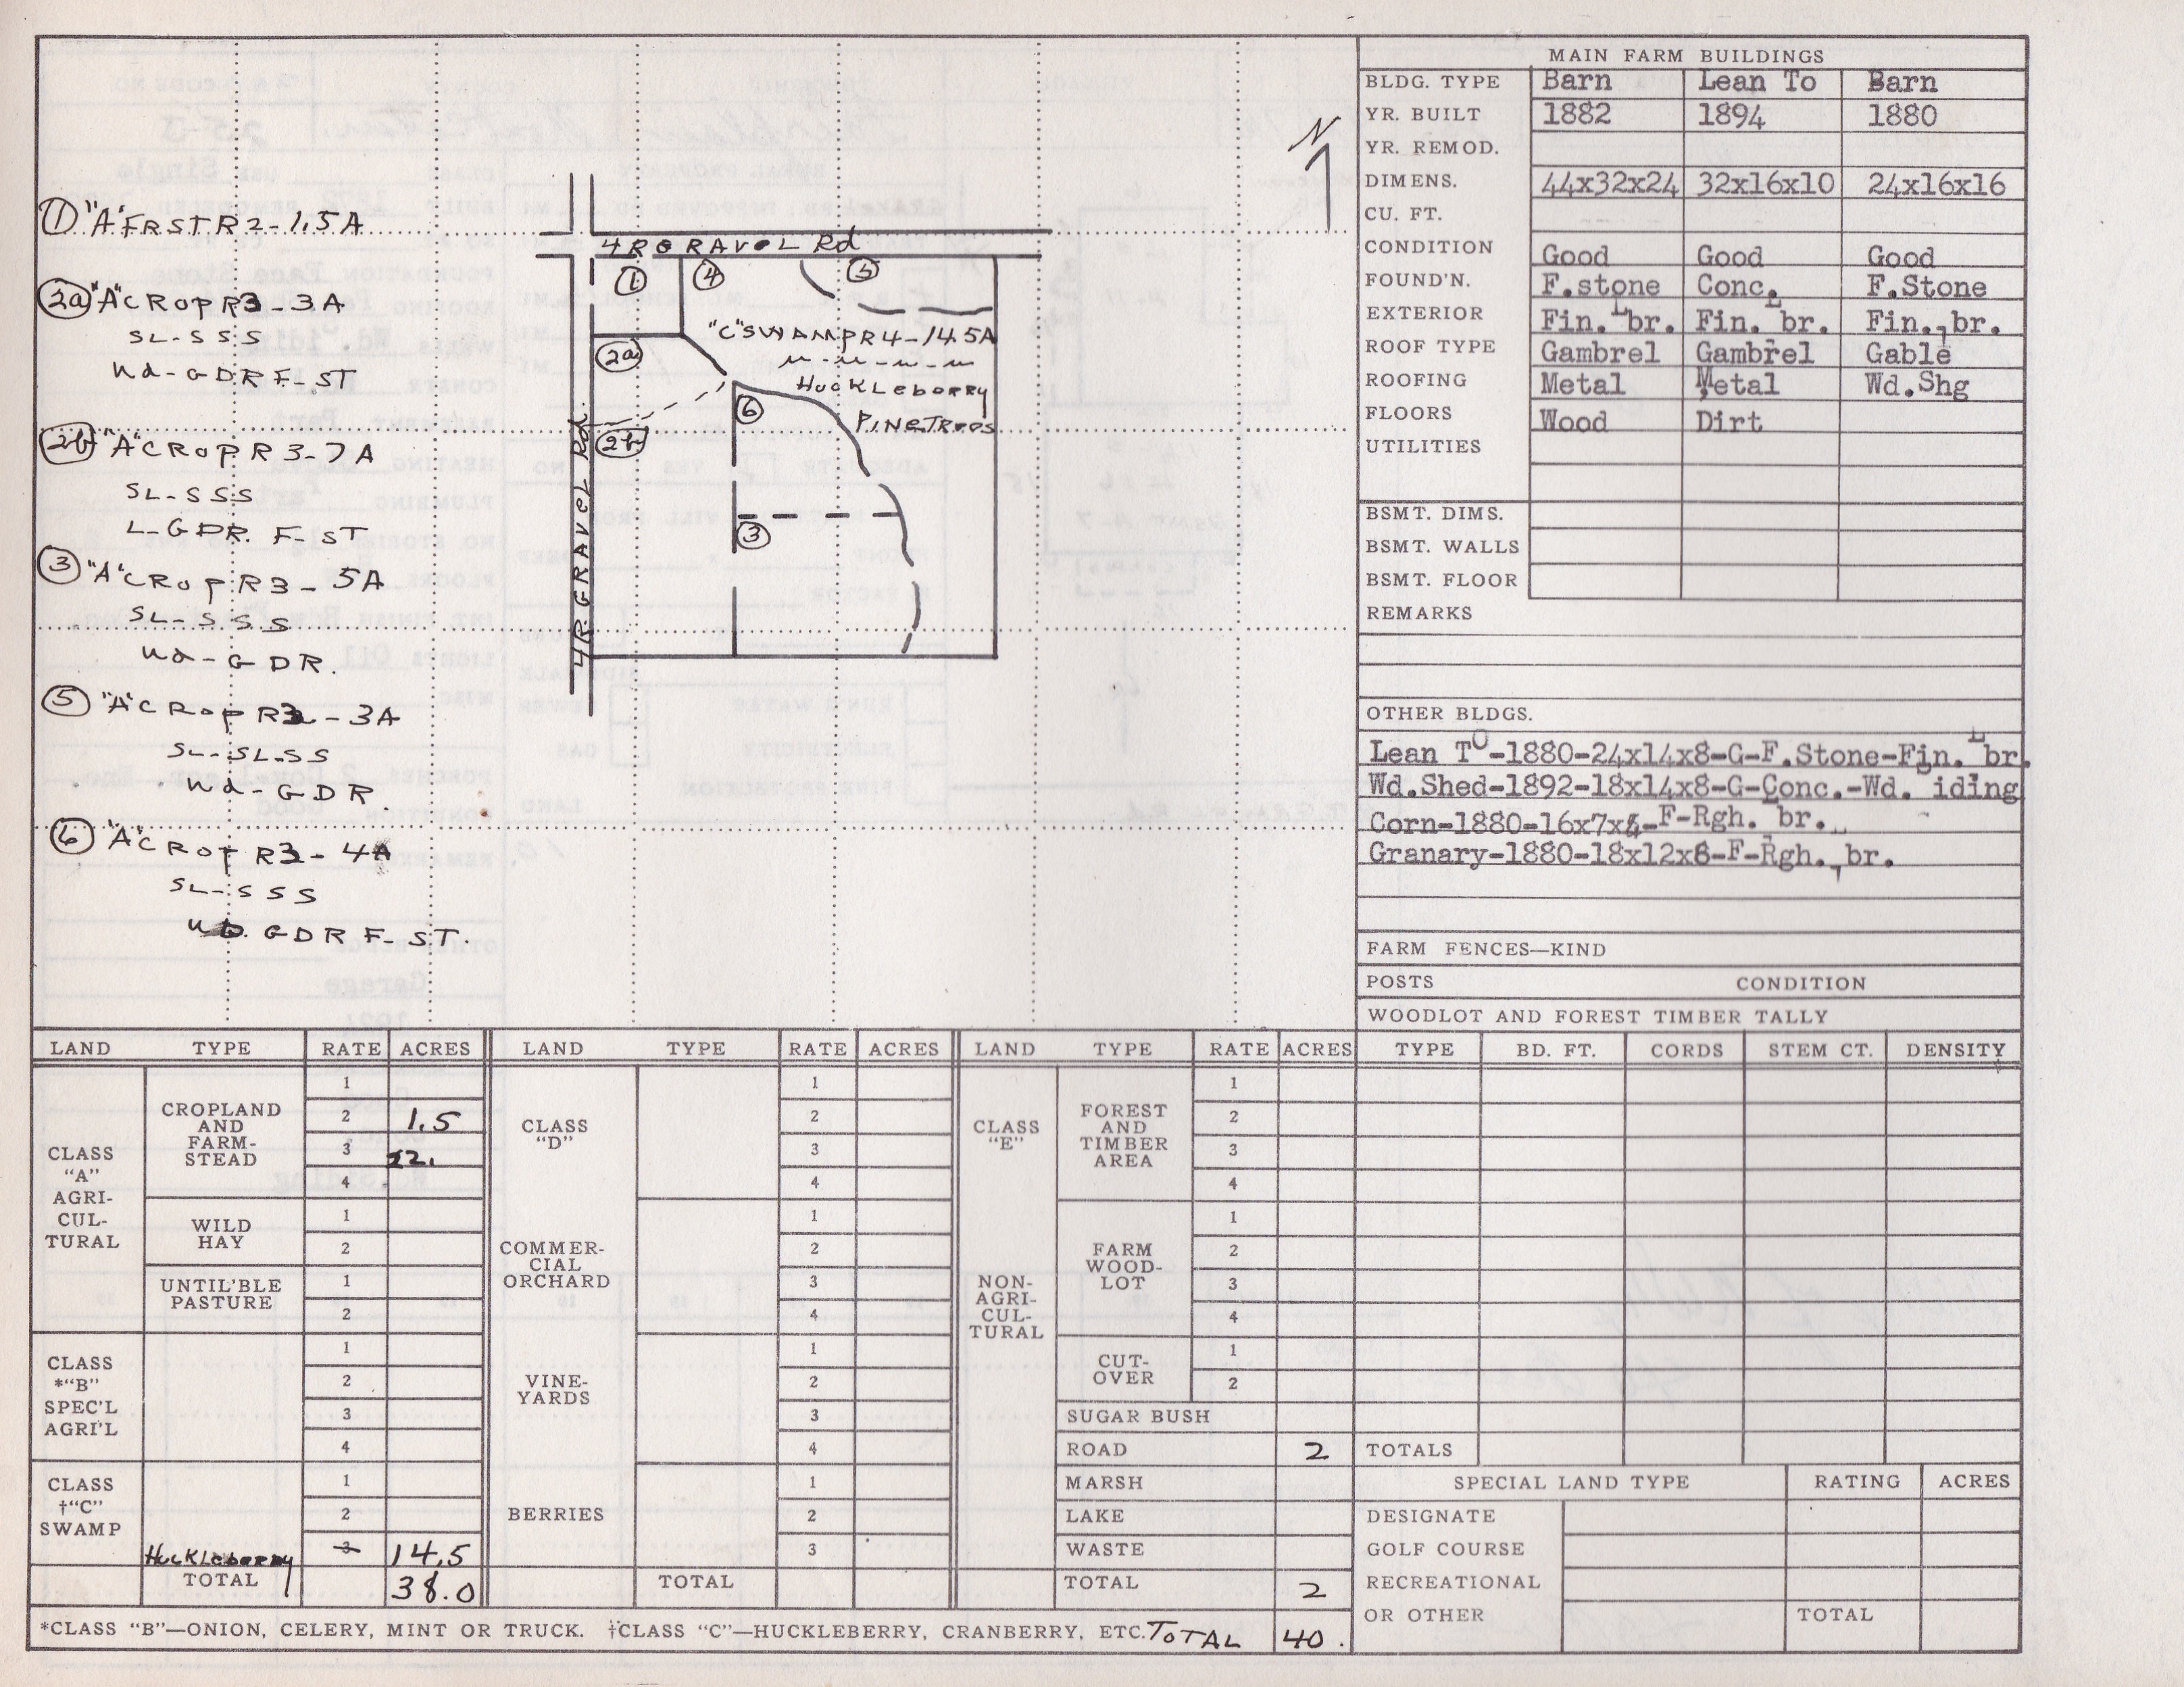 ① "A" FRST R2-1.5A
②a "A" CROP R3-3A
SL-SSS
Ud-GDR F-ST
②b "A" CROP R3-7A
SL-SSS
L-GDR. F-ST
③ "A" CROP R3-5A
SL-SSS
Ud-GDR.
⑤ "A" CROP R3-3A
SL-SL-SS
Ud-GDR.
⑥ "A" CROP R3-4A
SL-SSS
GDR F-ST.
N
4R GRAVEL Rd
① ④ ⑤
"C" SWAMP R4-14.5A
②a
HUCKLEberry
⑥
PINE TREES
②b
③
4R GRAVEL Rd.
MAIN FARM BUILDINGS
BLDG. TYPE Barn Lean To Barn
YR. BUILT 1882 1894 1880
YR. REMOD.
DIMENS. 44x32x24 32x16x10 24x16x16
CU. FT.
CONDITION Good Good Good
FOUND'N. F.stone Conc. F.Stone
EXTERIOR Fin. Lbr. Fin. Lbr. Fin. Lbr.
ROOF TYPE Gambrel Gambrel Gable
ROOFING Metal Metal Wd.Shg
FLOORS Wood Dirt
UTILITIES
BSMT. DIMS.
BSMT. WALLS
BSMT. FLOOR
REMARKS
OTHER BLDGS.
Lean To-1880-24x14x8-G-F.Stone-Fin. Lbr.
Wd.Shed-1892-18x14x8-G-Conc.-Wd. iding
Corn-1880-16x7x-F-Rgh. Lbr.
Granary-1880-18x12x8-F-Rgh. Lbr.
FARM FENCES—KIND
POSTS CONDITION
WOODLOT AND FOREST TIMBER TALLY
TYPE BD. FT. CORDS STEM CT. DENSITY
TOTALS
SPECIAL LAND TYPE RATING ACRES
DESIGNATE
GOLF COURSE
RECREATIONAL
OR OTHER TOTAL
LAND TYPE RATE ACRES
CLASS
"A"
AGRI-
CUL-
TURAL
CROPLAND
AND
FARM-
STEAD
1
2 1.5
3 22.
4
WILD
HAY
1
2
UNTIL'BLE
PASTURE
1
2
CLASS
*"B"
SPEC'L
AGRI'L
1
2
3
4
CLASS
†"C"
SWAMP
1
2
Huckleberry 3 14.5
TOTAL 38.0
LAND TYPE RATE ACRES
CLASS
"D"
1
2
3
4
COMMER-
CIAL
ORCHARD
1
2
3
4
VINE-
YARDS
1
2
3
4
BERRIES
1
2
3
TOTAL
LAND TYPE RATE ACRES
CLASS
"E"
NON-
AGRI-
CUL-
TURAL
FOREST
AND
TIMBER
AREA
1
2
3
4
FARM
WOOD-
LOT
1
2
3
4
CUT-
OVER
1
2
SUGAR BUSH
ROAD 2
MARSH
LAKE
WASTE
TOTAL 2
*CLASS "B"—ONION, CELERY, MINT OR TRUCK. †CLASS "C"—HUCKLEBERRY, CRANBERRY, ETC. TOTAL 40.